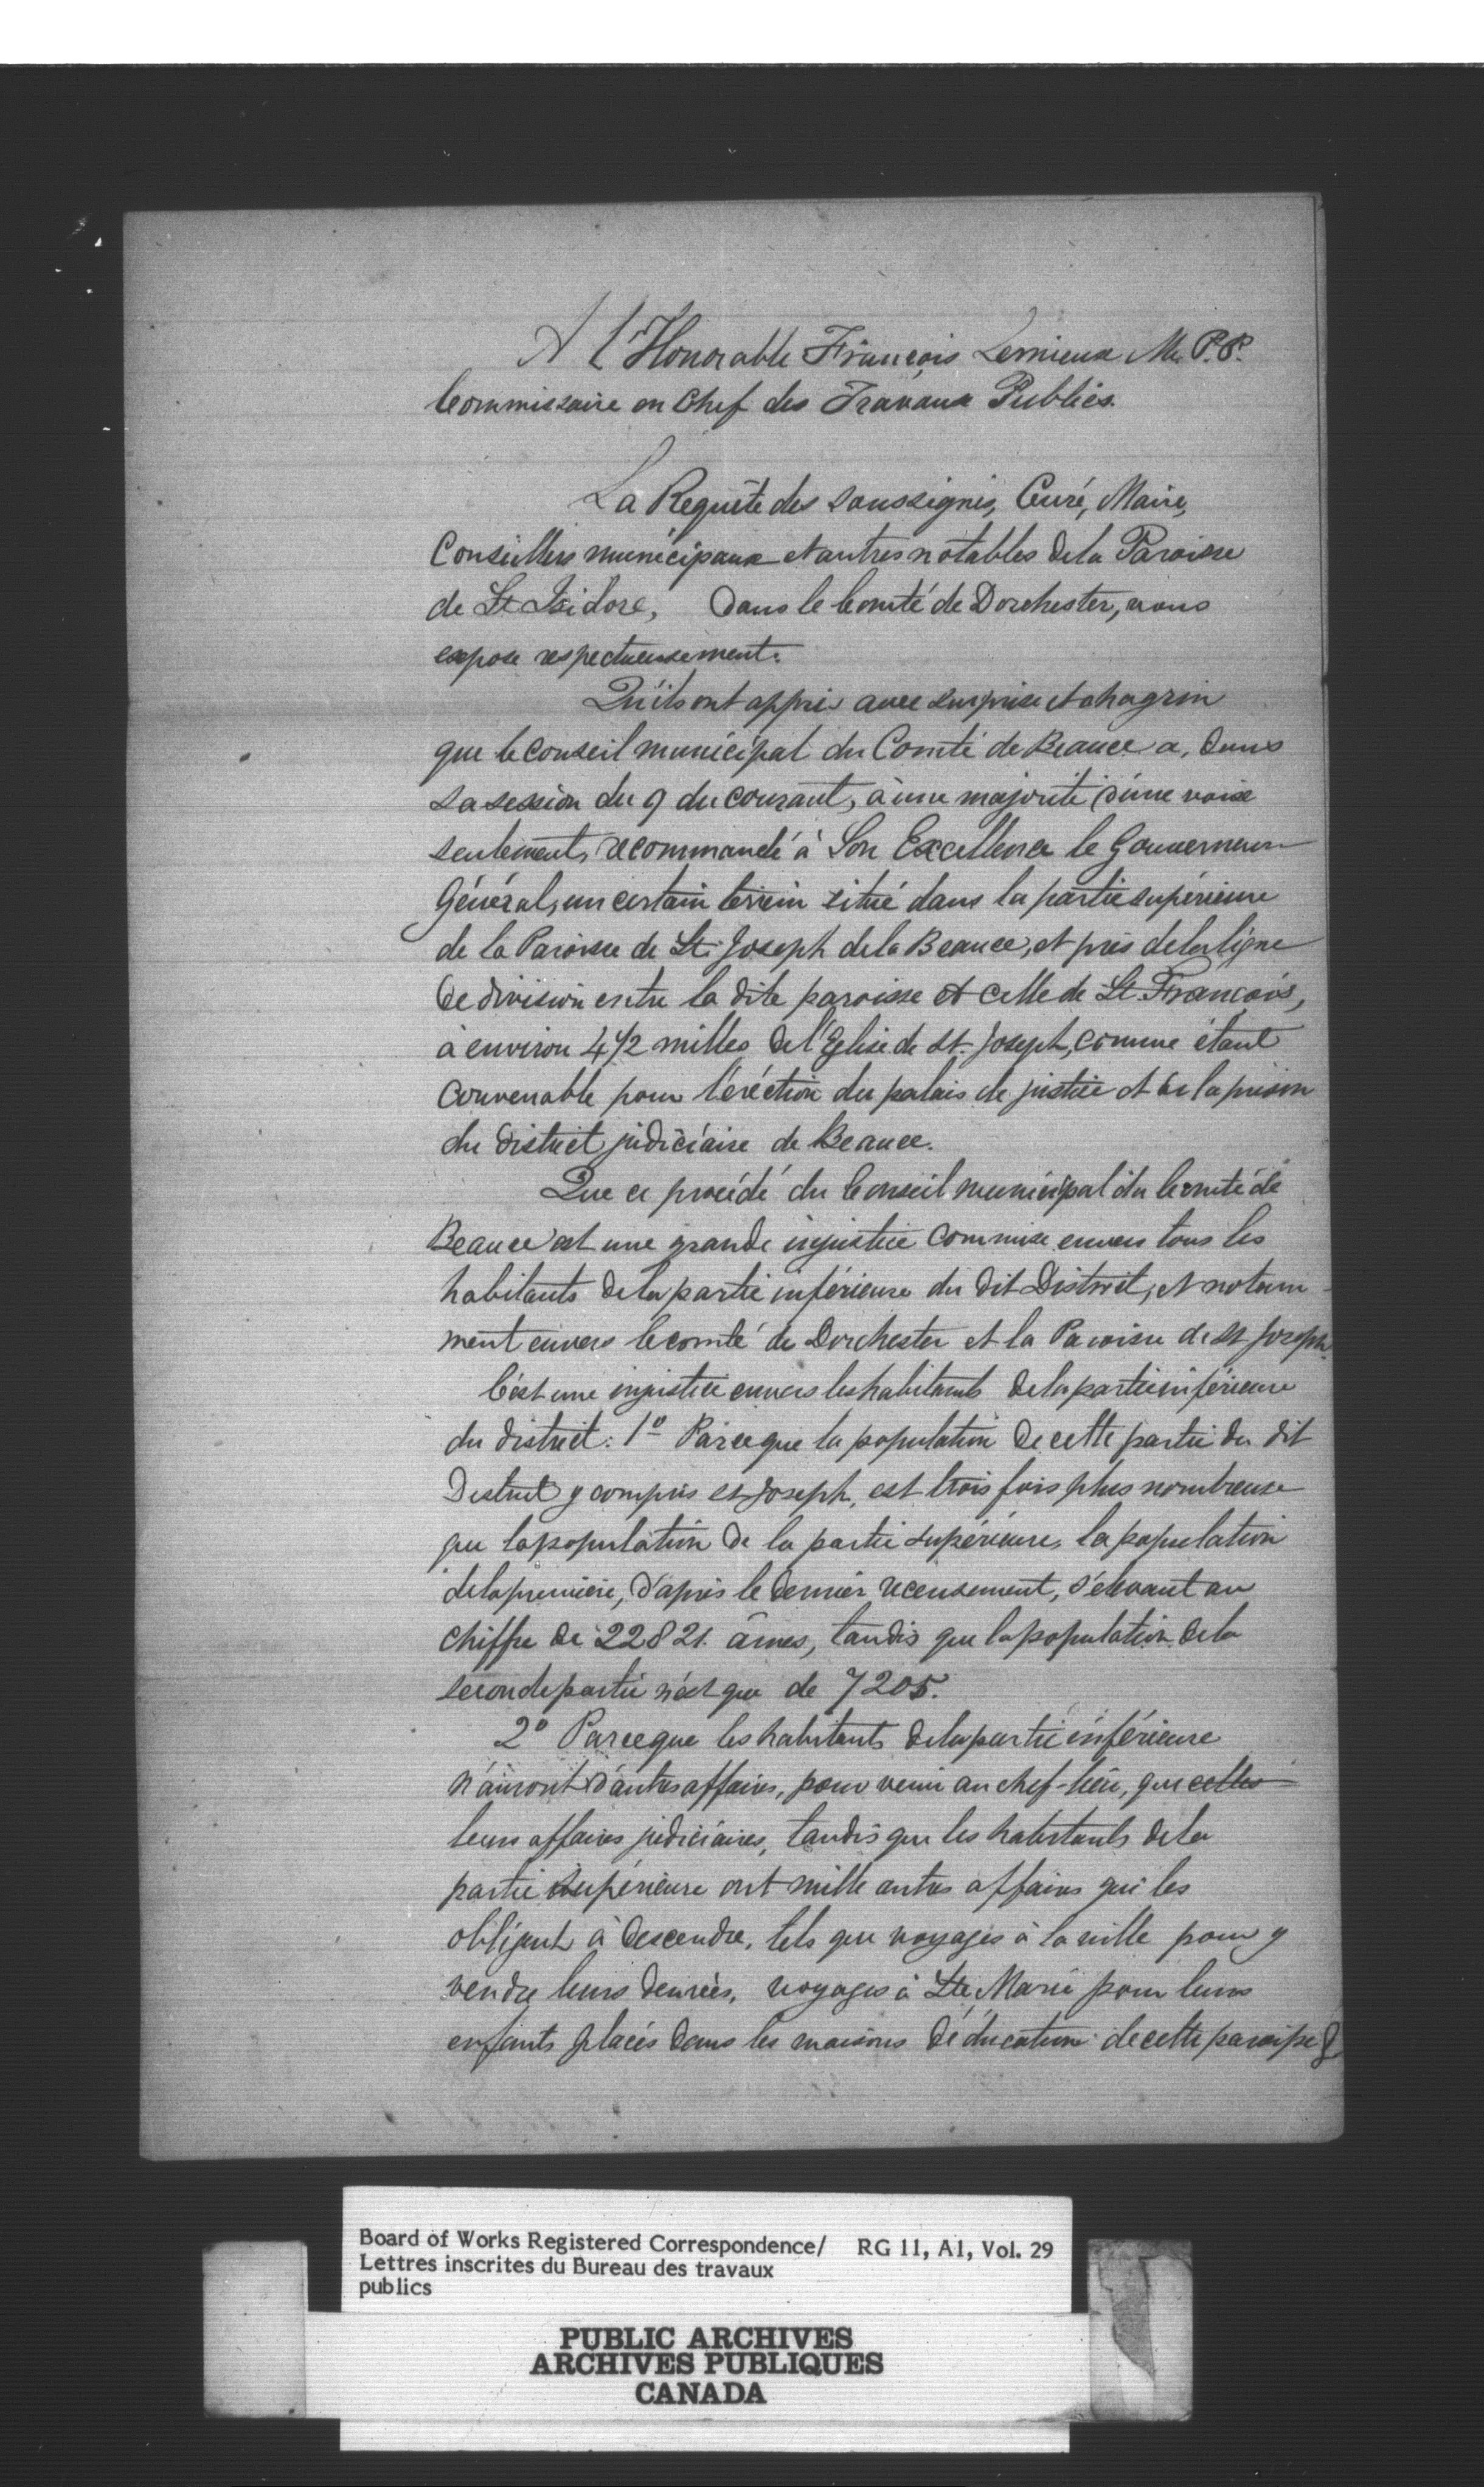 A l'Honorable François Lemieux M. P.P.
Commissaire en Chef des Travaux Publics.
La Requête des soussignés, Curé, Maire,
Conseillers municipaux et autres notables de la Paroisse
de St Isidore, dans le Comté de Dorchester, vous
expose respectueusement.
Qu'ils ont appris avec surprise et chagrin
que le Conseil municipal du Comté de Beauce a, dans
sa session du 9 du courant, à une majorité d'une voix
seulement, recommandé à Son Excellence le Gouverneur
Général, un certain terrein situé dans la partie supérieure
de la Paroisse de St. Joseph de la Beauce, et près de la ligne
de division entre la dite paroisse et celle de St. François,
à environ 4 1/2 milles de l'Eglise de St. Joseph, comme étant
convenable pour l'éréction du palais de justice et de la prison
du district judiciaire de Beauce.
Que ce procédé du Conseil municipal du Comté de
Beauce est une grande injustice commise envers tous les
habitants de la partie inférieure du dit District, et notam-
ment envers le comté de Dorchester et la Paroisse de St Joseph.
C'est une injustice envers les habitants de la partie inférieure
du district: 1º Parceque la population de cette partie du dit
District y compris St Joseph, est trois fois plus nombreuse
que la population de la partie supérieure, la population
de la première, d'après le dernier recensement, s'élevant au
chiffre de 22821. âmes, tandis que la population de la
seconde partie n'est que de 7205.
2º Parceque les habitants de la partie inférieure
n'auront d'autres affaires, pour venir au chef-lieu, que celles
leurs affaires judiciaires, tandis que les habitants de la
partie supérieure ont mille autres affaires qui les
obligent à descendre, tels que voyages à la ville pour y
vendre leurs denrées, voyages à Ste Marie pour leurs
enfants placés dans les maisons d'éducation de cette paroisse &
Board of Works Registered Correspondence/ RG 11, A1, Vol. 29
Lettres inscrites du Bureau des travaux
publics
PUBLIC ARCHIVES
ARCHIVES PUBLIQUES
CANADA